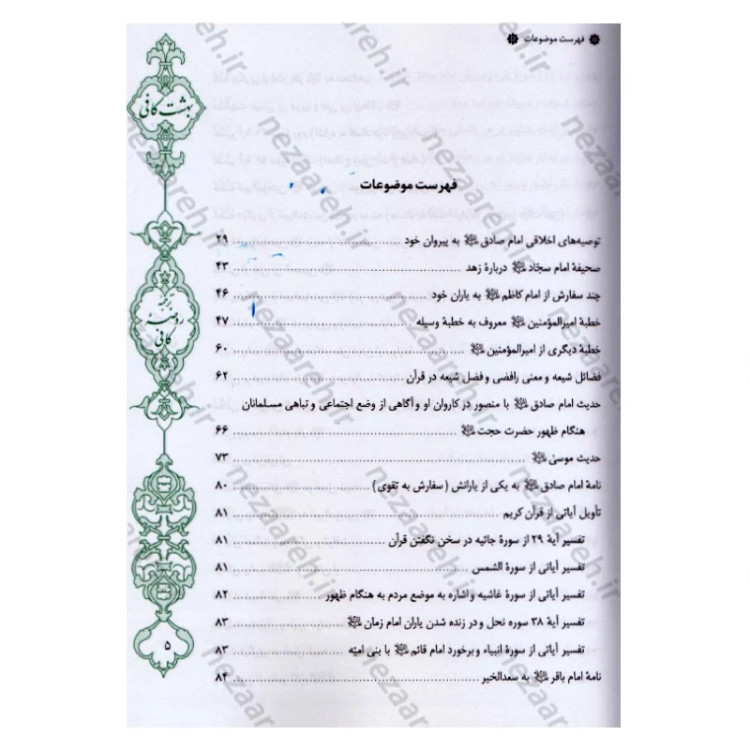 فهرست موضوعات
بهشت کافی
ترجمه
روضه
کافی
۵
فهرست موضوعات
توصیه‌های اخلاقی امام صادق علیه‌السلام به پیروان خود ........ ۲۹
صحیفهٔ امام سجّاد علیه‌السلام دربارهٔ زهد ........ ۴۳
چند سفارش از امام کاظم علیه‌السلام به یاران خود ........ ۴۶
خطبهٔ امیرالمؤمنین علیه‌السلام معروف به خطبهٔ وسیله ........ ۴۷
خطبهٔ دیگری از امیرالمؤمنین علیه‌السلام ........ ۶۰
فضائل شیعه و معنی رافضی و فضل شیعه در قرآن ........ ۶۲
حدیث امام صادق علیه‌السلام با منصور در کاروان او و آگاهی از وضع اجتماعی و تباهی مسلمانان
هنگام ظهور حضرت حجت علیه‌السلام ........ ۶۶
حدیث موسیٰ علیه‌السلام ........ ۷۳
نامهٔ امام صادق علیه‌السلام به یکی از یارانش (سفارش به تقوی) ........ ۸۰
تأویل آیاتی از قرآن کریم ........ ۸۱
تفسیر آیهٔ ۲۹ از سورهٔ جاثیه در سخن نگفتن قرآن ........ ۸۱
تفسیر آیاتی از سورهٔ الشمس ........ ۸۱
تفسیر آیاتی از سورهٔ غاشیه و اشاره به موضع مردم به هنگام ظهور ........ ۸۲
تفسیر آیهٔ ۳۸ سوره نحل و در زنده شدن یاران امام زمان علیه‌السلام ........ ۸۳
تفسیر آیاتی از سورهٔ انبیاء و برخورد امام قائم علیه‌السلام با بنی امیّه ........ ۸۳
نامهٔ امام باقر علیه‌السلام به سعدالخیر ........ ۸۴
nezaareh.ir